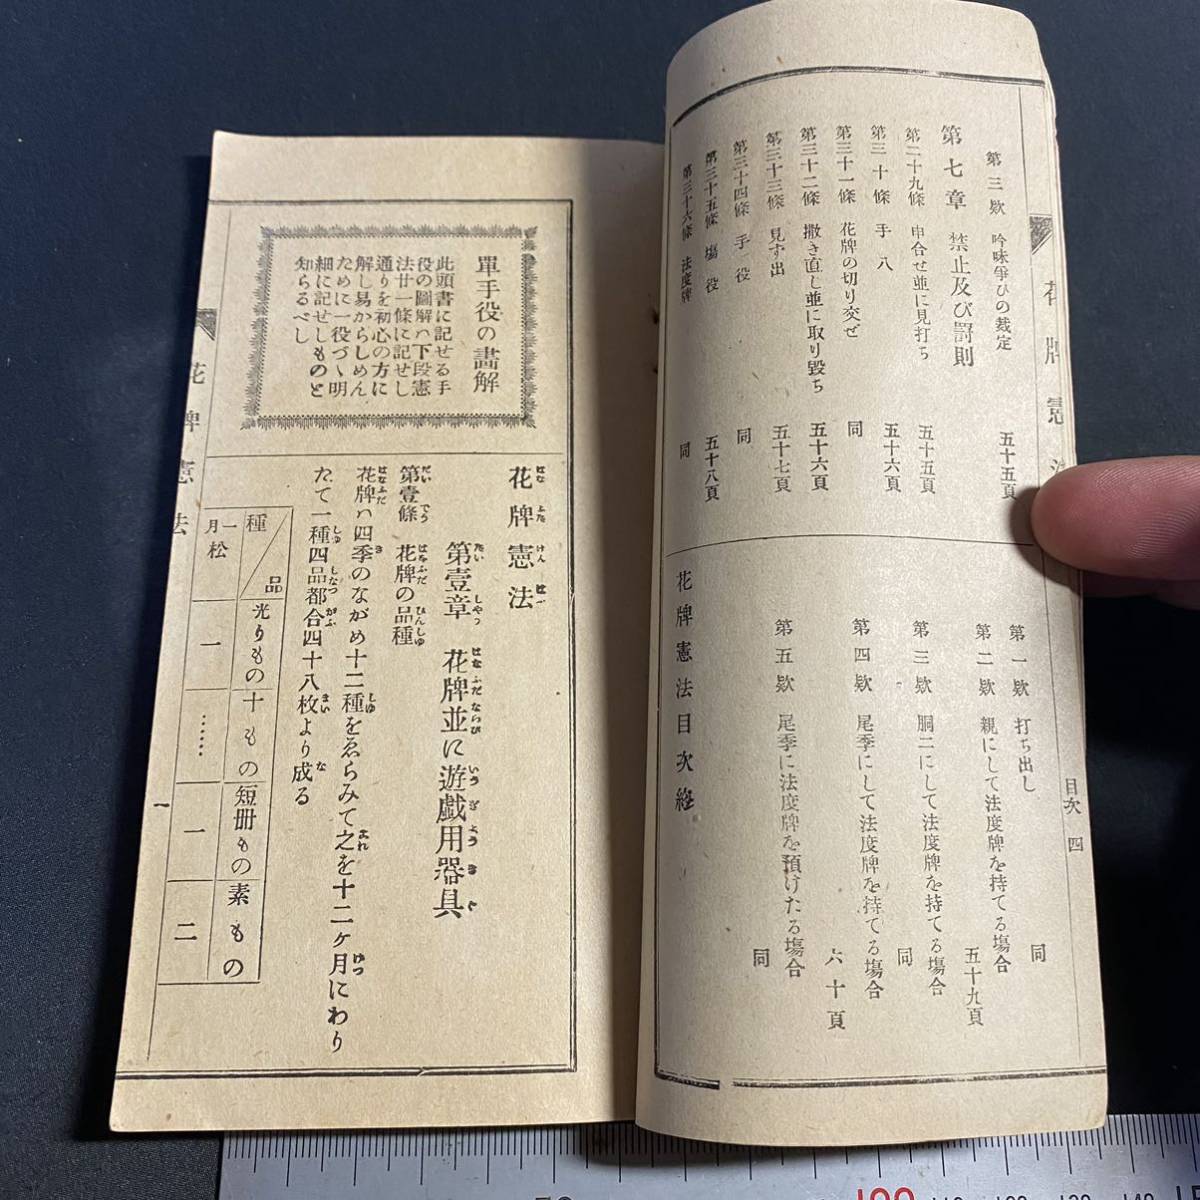 花牌憲法
目次 四
第三欵 吟味爭ひの裁定 五十五頁
第七章 禁止及び罰則
第二十九條 申合せ並に見打ち 五十五頁
第三十條 手八 五十六頁
第三十一條 花牌の切り交ぜ 同
第三十二條 撒き直し並に取り毀ち 五十六頁
第三十三條 見ず出 五十七頁
第三十四條 手役 同
第三十五條 塲役 五十八頁
第三十六條 法度牌 同
第一欵 打ち出し 同
第二欵 親にして法度牌を持てる塲合 五十九頁
第三欵 胴二にして法度牌を持てる塲合 同
第四欵 尾季にして法度牌を持てる塲合 六十頁
第五欵 尾季に法度牌を預けたる塲合 同
花牌憲法目次終
單手役の畵解
此頭書に記せる手
役の圖解ハ下段憲
法廿一條に記せし
通りを初心の方に
解し易からしめん
ために一役づゝ明
細に記せしものと
知らるべし
花牌憲法
第壹章 花牌並に遊戯用器具
第壹條 花牌の品種
花牌ハ四季のながめ十二種をゑらみて之を十二ヶ月にわり
たて一種四品都合四十八枚より成る
種 品 光りもの 十もの 短册もの 素もの
一月 松 一 …… 一 二
花牌憲法
一